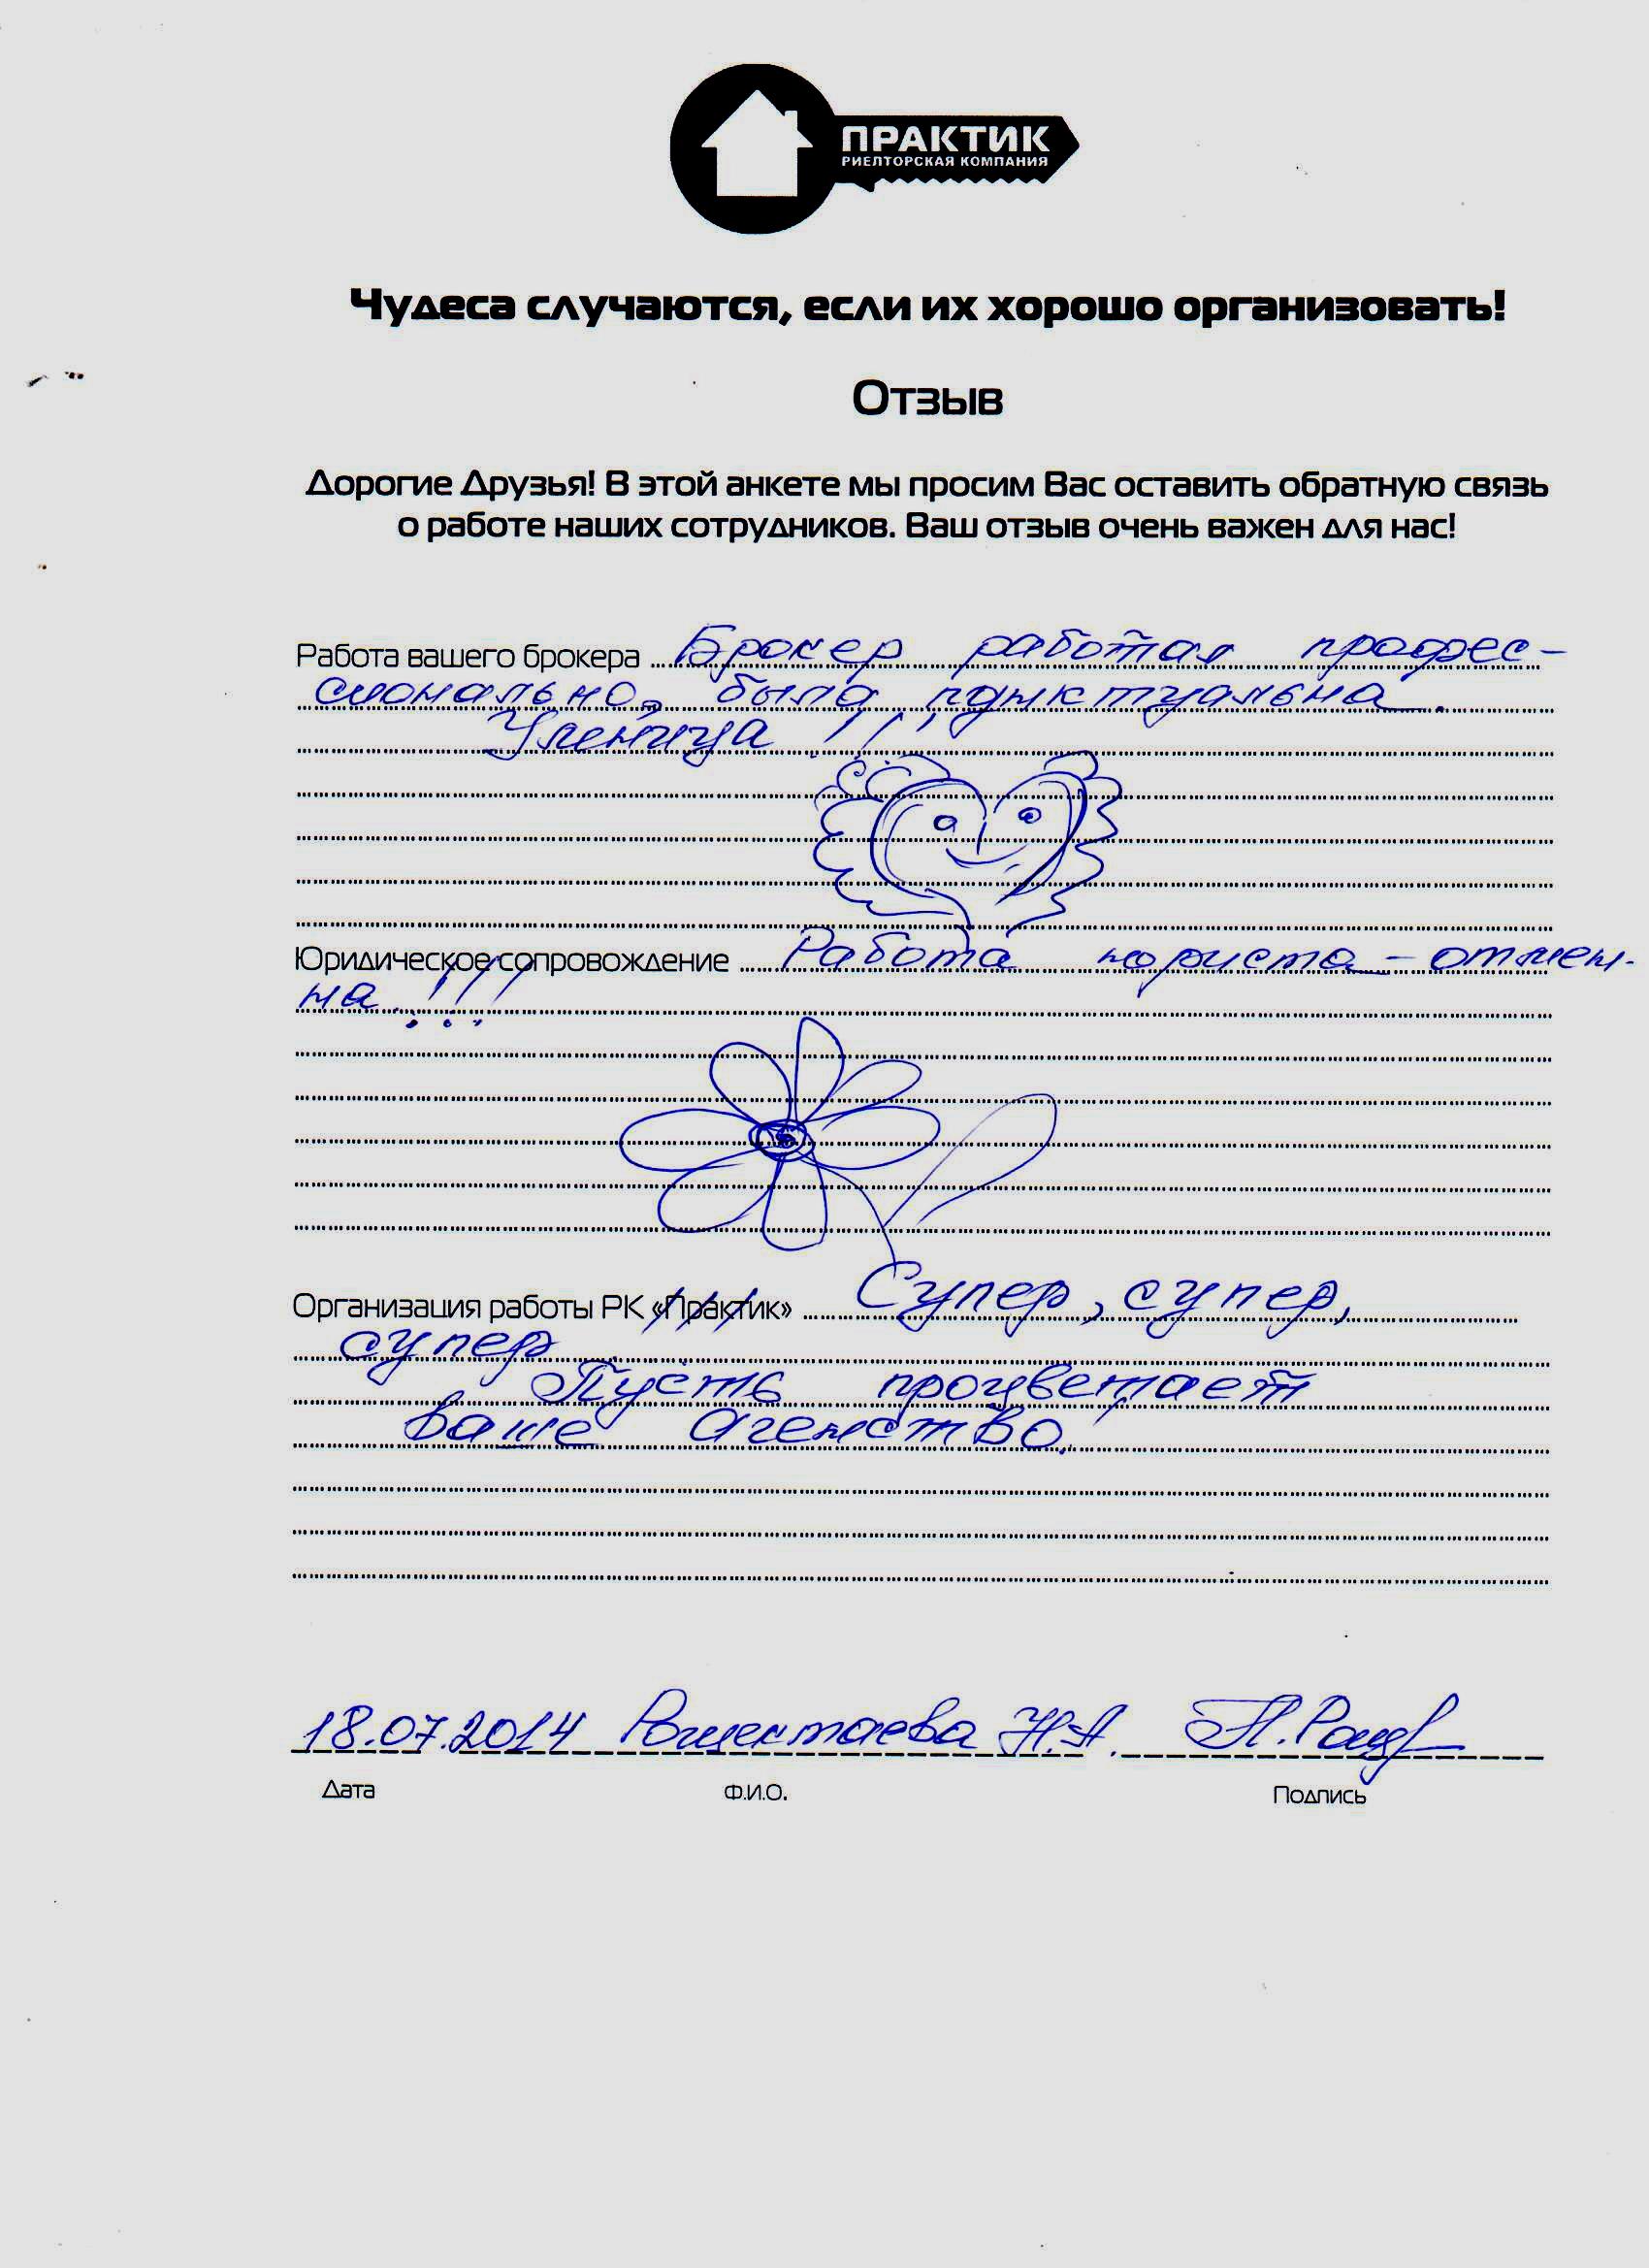 ПРАКТИК
РИЕЛТОРСКАЯ КОМПАНИЯ
Чудеса случаются, если их хорошо организовать!
Отзыв
Дорогие Друзья! В этой анкете мы просим Вас оставить обратную связь
о работе наших сотрудников. Ваш отзыв очень важен для нас!
Работа вашего брокера Брокер работал профес-
сионально, была пунктуальна.
Умница !!!
Юридическое сопровождение Работа юриста - отмен-
на !!!
Организация работы РК «Практик» Супер, супер,
супер !!!
Пусть процветает
ваше агенство.
18.07.2014 Н.А. Н.
Дата Ф.И.О. Подпись